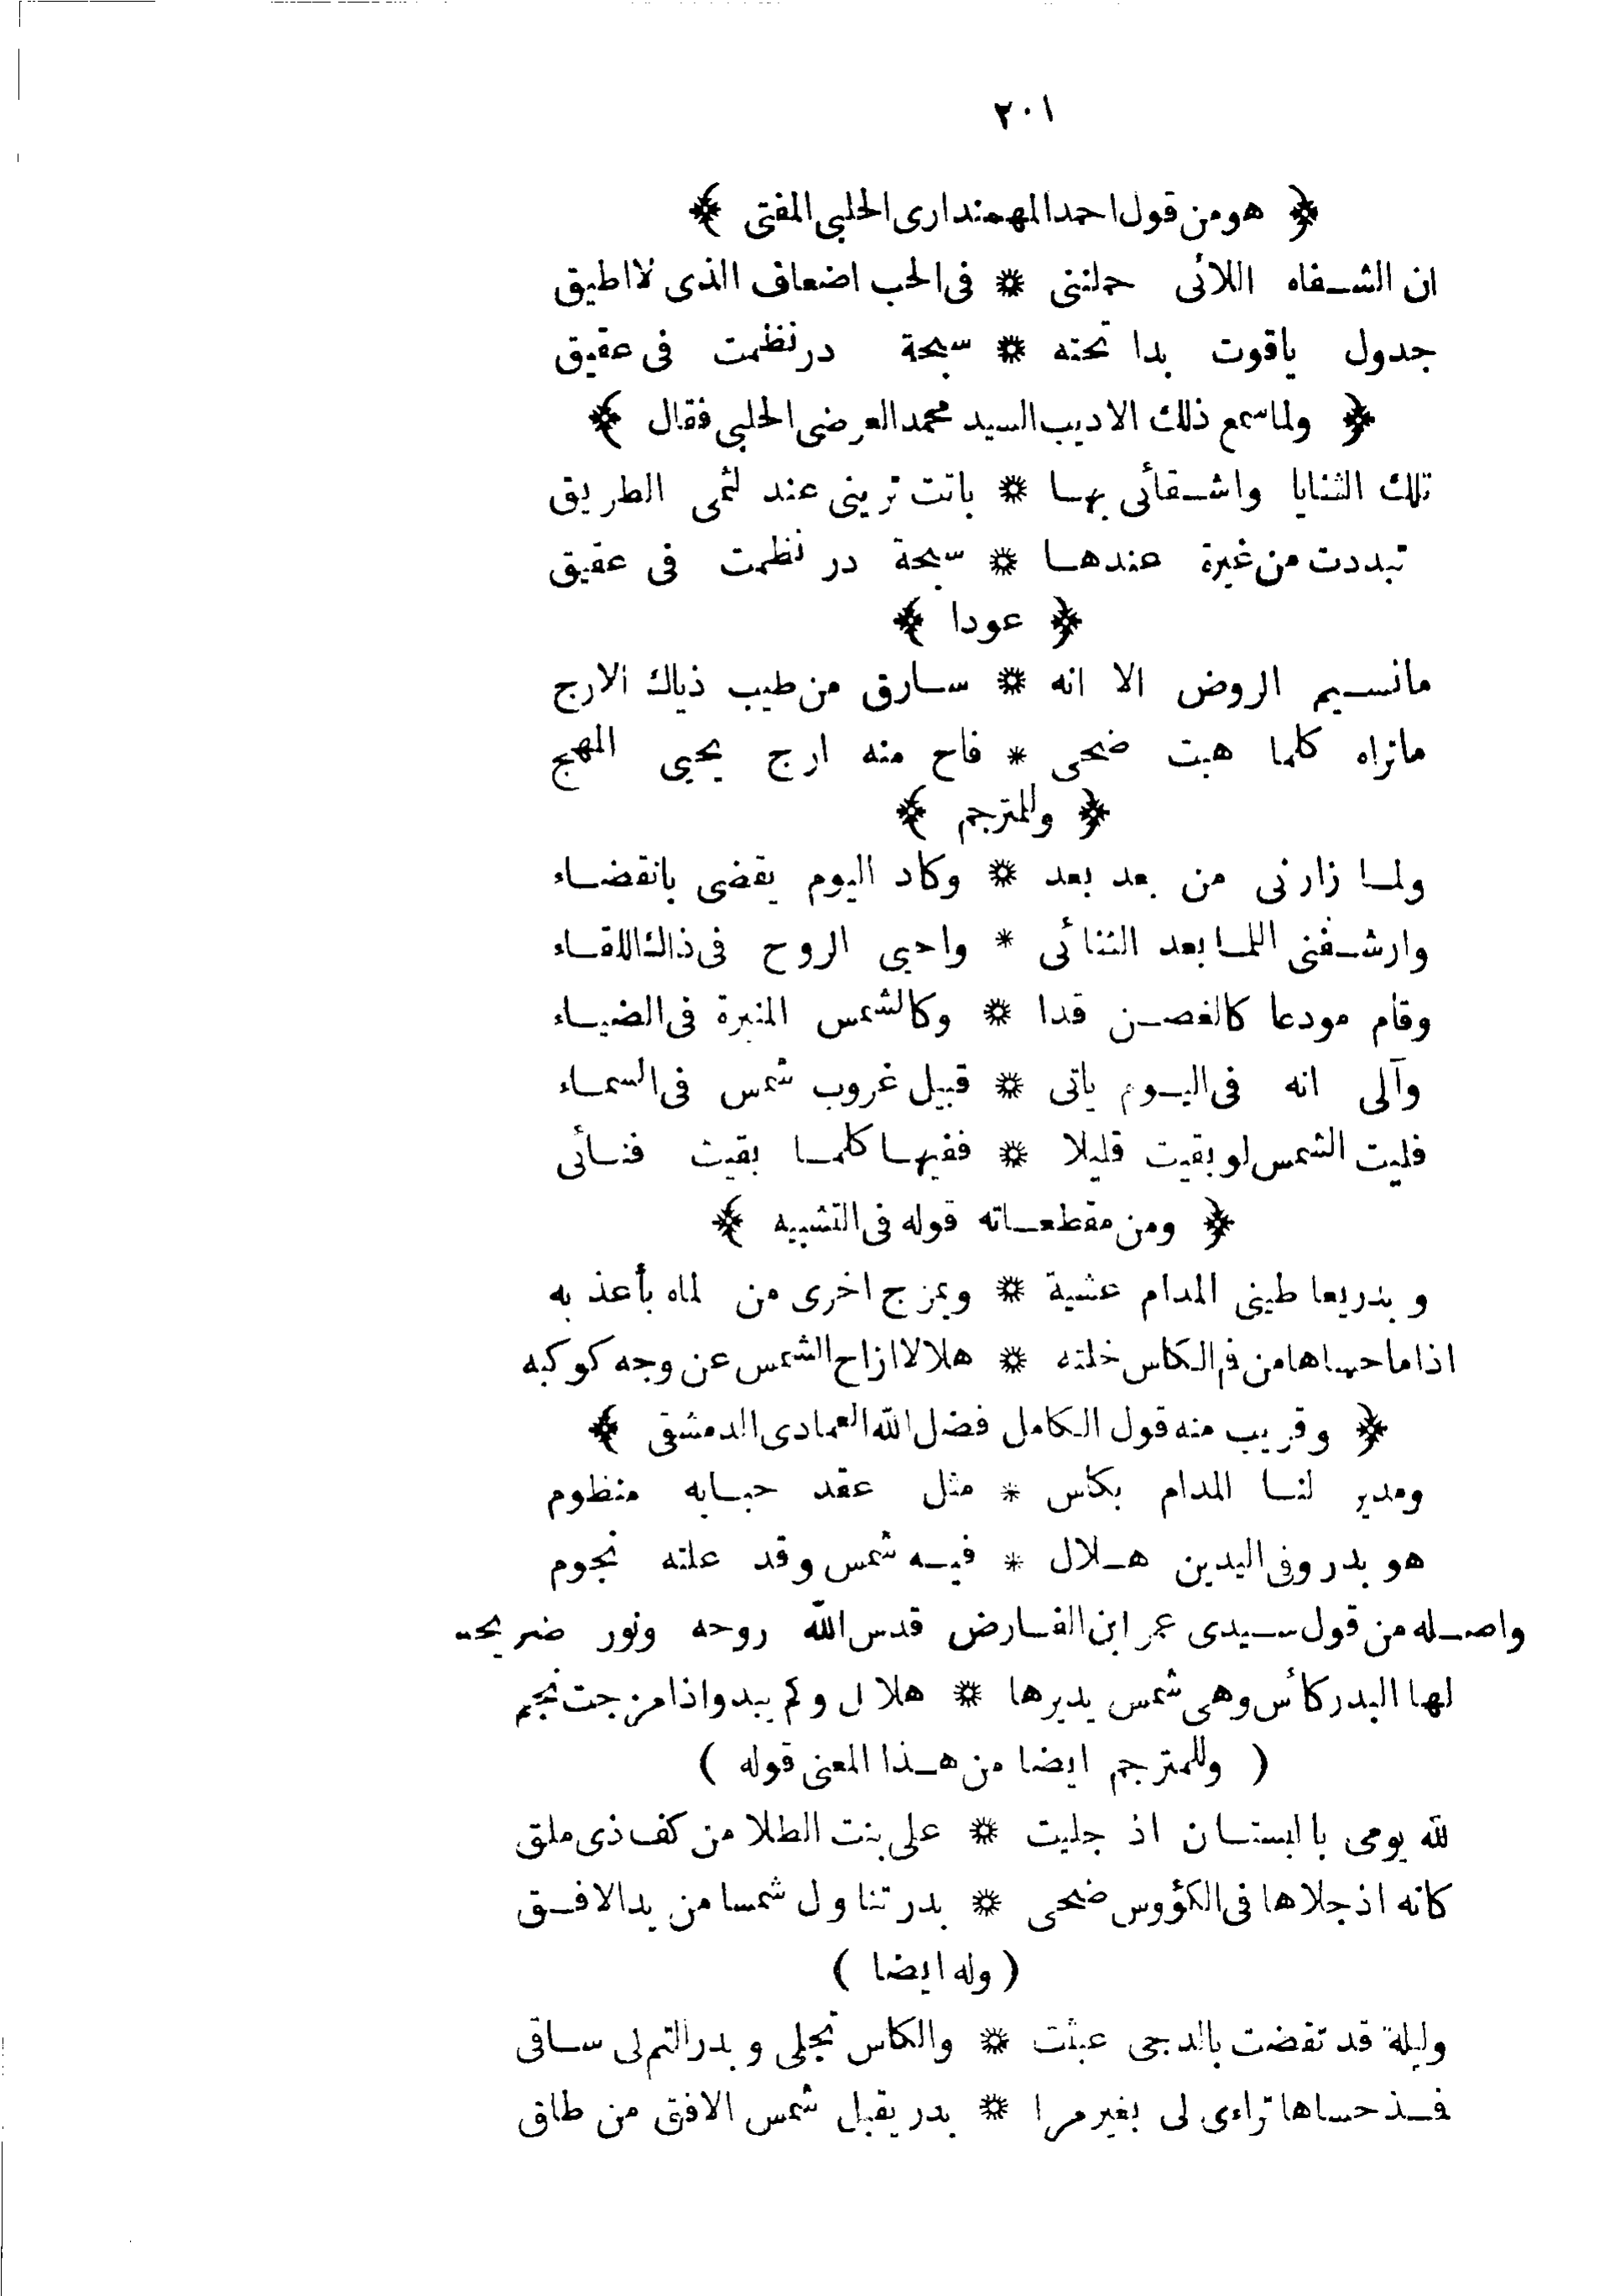 ٢٠١
﴿ هو من قول احمد المهمندارى الحلبى المفتى ﴾
ان الشفاه اللائى حملننى * فى الحب اضعاف الذى لا اطيق
جدول ياقوت بدا تحته * سبحة در نظمت فى عقيق
﴿ ولما سمع ذلك الاديب السيد محمد العرضى الحلبى فقال ﴾
تلك الثنايا واشقائى بها * باتت ترينى عند لثمى الطريق
تبددت من غيرة عندها * سبحة در نظمت فى عقيق
﴿ عودا ﴾
ما نسيم الروض الا انه * سارق من طيب ذياك الارج
ما تراه كلما هبت ضحى * فاح منه ارج يحيى المهج
﴿ وللمترجم ﴾
ولما زارنى من بعد بعد * وكاد اليوم يقضى بانقضاء
وارشفنى اللما بعد الثنائى * واحيى الروح فى ذاك اللقاء
وقام مودعا كالغصن قدا * وكالشمس المنيرة فى الضياء
وآلى انه فى اليوم ياتى * قبيل غروب شمس فى السماء
فليت الشمس لو بقيت قليلا * ففيها كلما بقيت فنائى
﴿ ومن مقطعاته قوله فى التشبيه ﴾
وبدر يعاطينى المدام عشية * ويمزج اخرى من لماه بأعذبه
اذا ما حساها من فم الكاس خلته * هلالا ازاح الشمس عن وجه كوكبه
﴿ وقريب منه قول الكامل فضل الله العمادى الدمشقى ﴾
ومدير لنا المدام بكاس * مثل عقد حبابه منظوم
هو بدر وفى اليدين هلال * فيه شمس وقد علته نجوم
واصله من قول سيدى عمر ابن الفارض قدس الله روحه ونور ضريحه
لها البدر كأس وهى شمس يديرها * هلال وكم يبدو اذا مزجت نجم
( وللمترجم ايضا من هذا المعنى قوله )
لله يومى بالبستان اذ جليت * على بنت الطلا من كف ذى ملق
كانه اذ جلاها فى الكؤوس ضحى * بدر تناول شمسا من يد الافق
( وله ايضا )
وليلة قد تقضت بالدجى عبثت * والكاس تجلى وبدر التم لى ساقى
فذ حساها تراءى لى بغير مرا * بدر يقبل شمس الافق من طاق